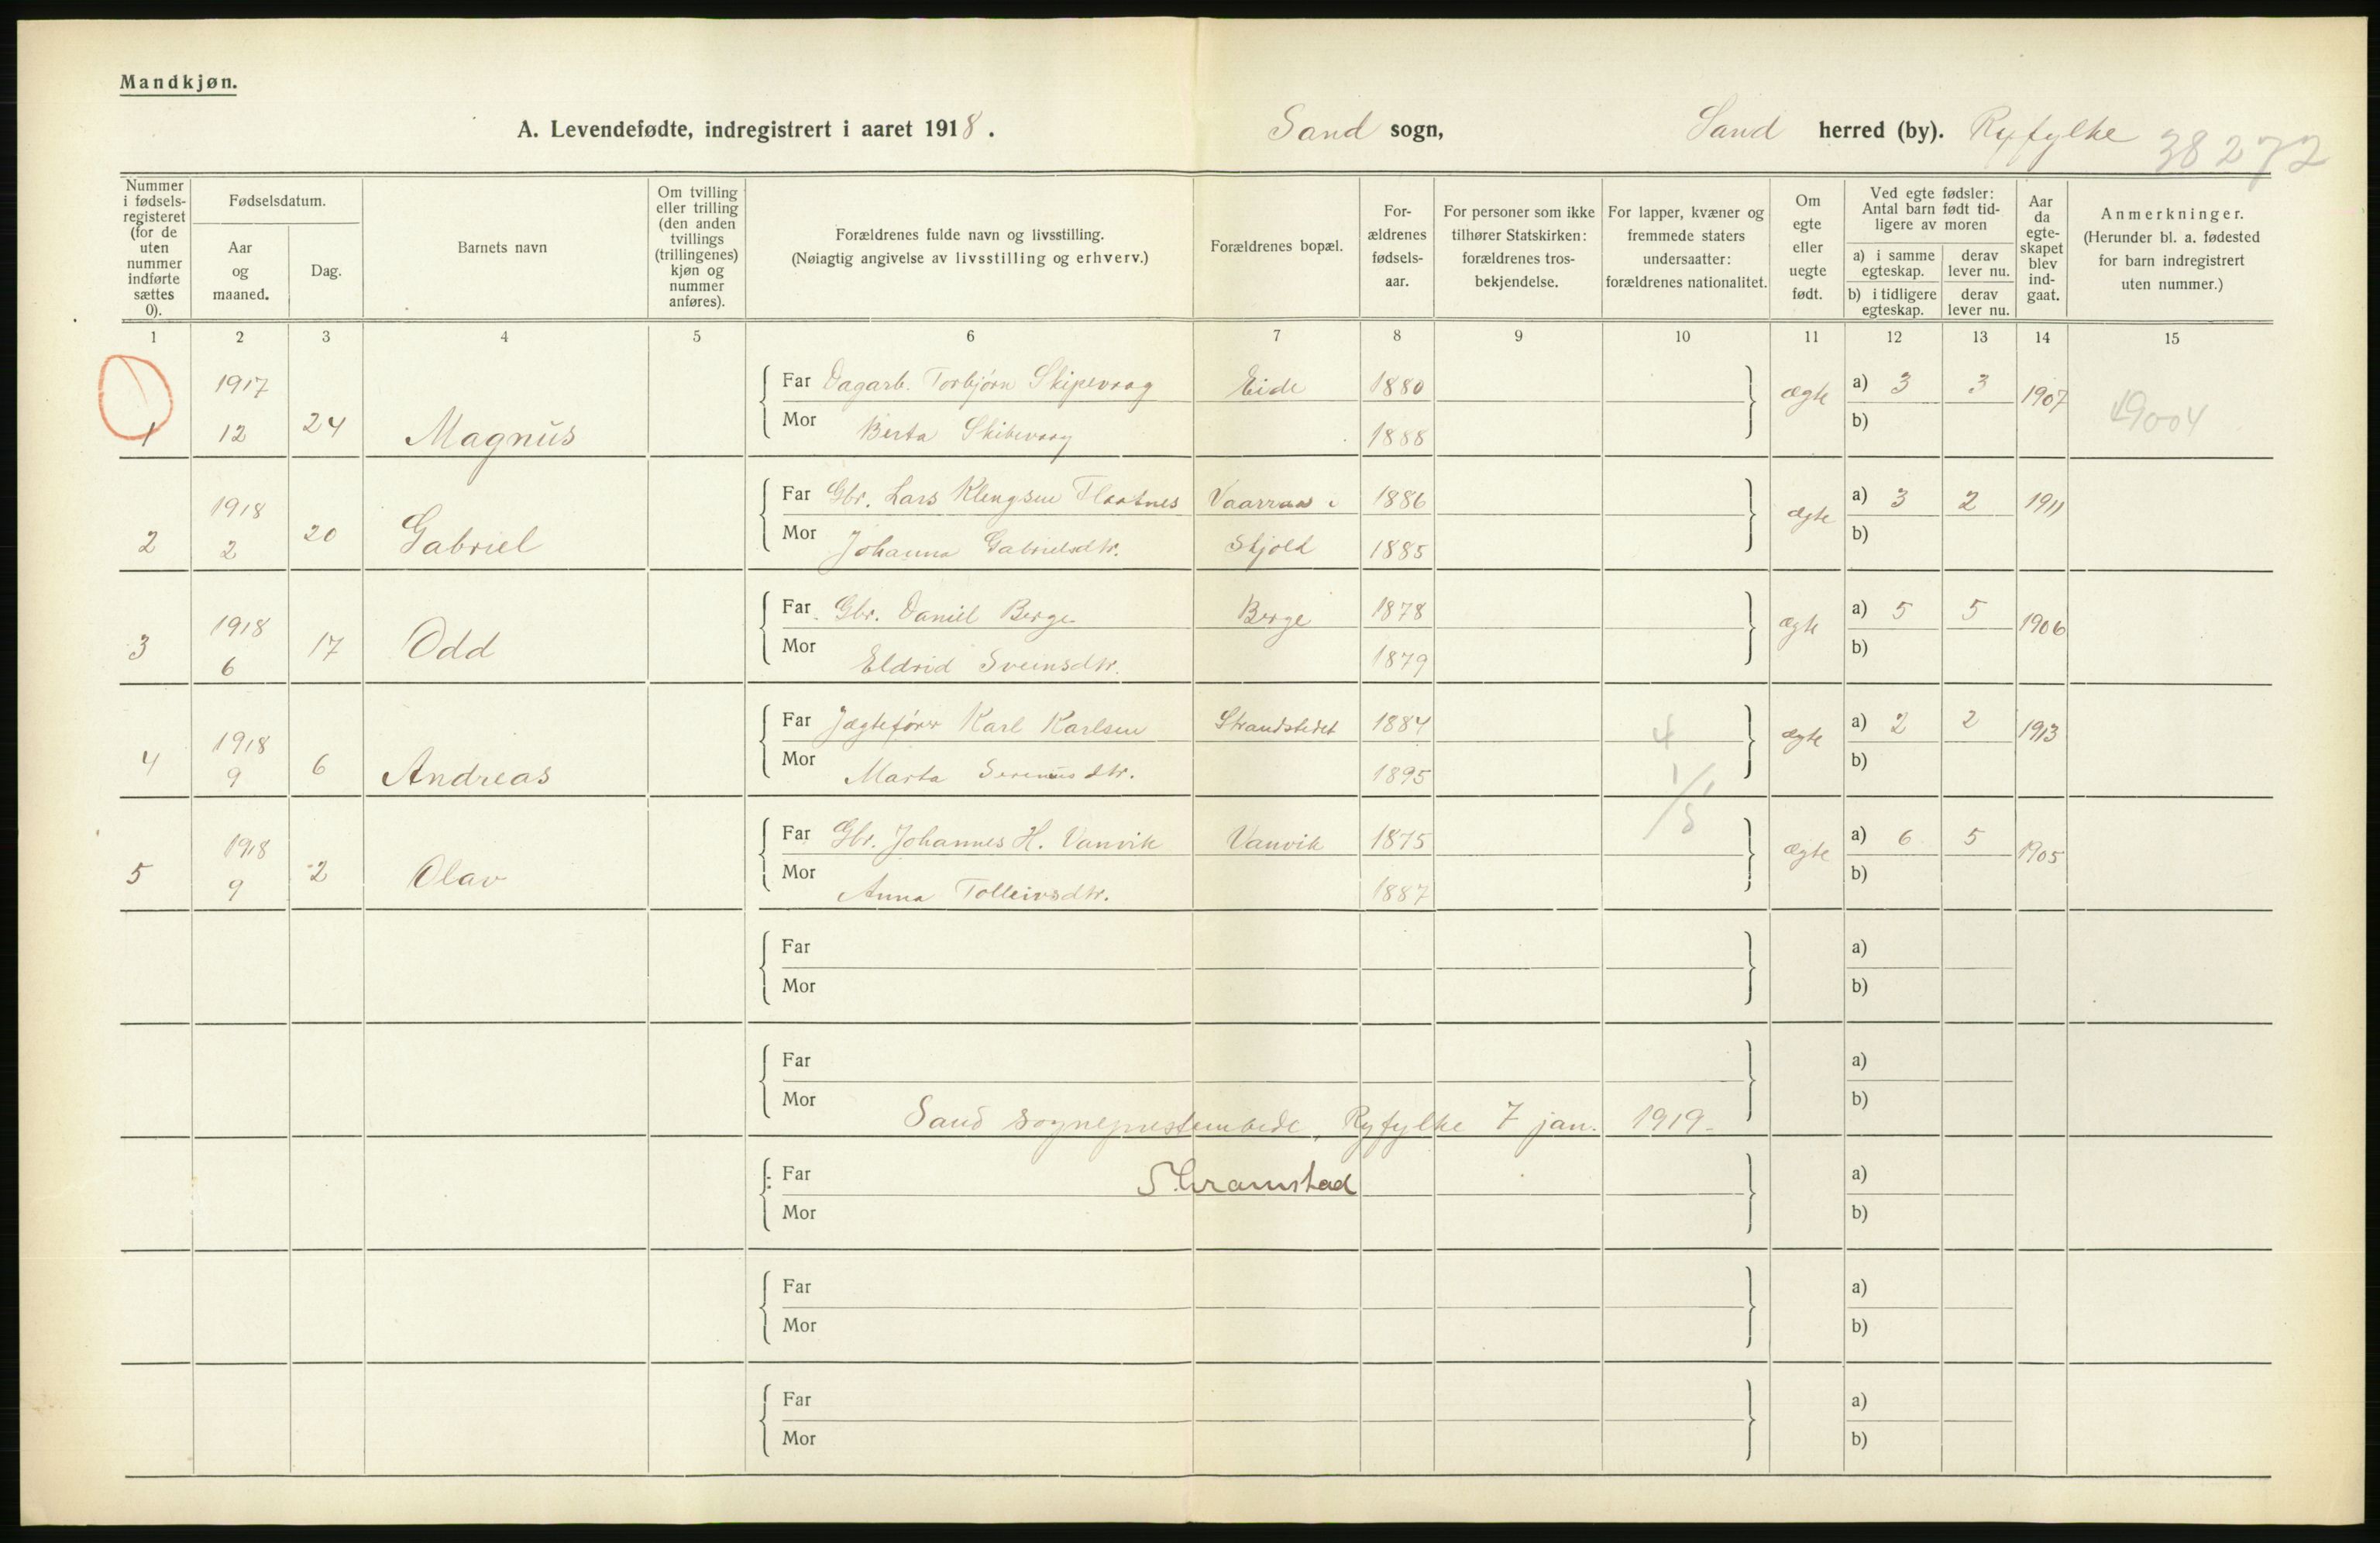 Mandkjøn.
A. Levendefødte, indregistrert i aaret 1918. Sand sogn, Sand herred (by). Ryfylke 38272
Nummer i fødselsregisteret (for de uten nummer indførte sættes 0).
Fødselsdatum.
Aar og maaned.
Dag.
Barnets navn
Om tvilling eller trilling (den anden tvillings (trillingenes) kjøn og nummer anføres).
Forældrenes fulde navn og livsstilling.
(Nøiagtig angivelse av livsstilling og erhverv.)
Forældrenes bopæl.
Forældrenes fødselsaar.
For personer som ikke tilhører Statskirken: forældrenes trosbekjendelse.
For lapper, kvæner og fremmede staters undersaatter: forældrenes nationalitet.
Om egte eller uegte født.
Ved egte fødsler: Antal barn født tidligere av moren
a) i samme egteskap. derav lever nu.
b) i tidligere egteskap. derav lever nu.
Aar da egteskapet blev indgaat.
Anmerkninger.
(Herunder bl. a. fødested for barn indregistrert uten nummer.)
1 2 3 4 5 6 7 8 9 10 11 12 13 14 15
1917 Far Dagarb. Torbjørn Skipevaag Eide 1880 ægte a) 3 3 1907
1 12 24 Magnus Mor Berta Skibevaag 1888 b) 49004
1918 Far Gbr. Lars Klengsen Flaatnes Vaarraa i 1886 ægte a) 3 2 1911
2 2 20 Gabriel Mor Johanna Gabrielsdtr. Skjold 1885 b)
1918 Far Gbr. Daniel Berge Berge 1878 ægte a) 5 5 1906
3 6 17 Odd Mor Eldrid Sveinsdtr. 1879 b)
1918 Far Jægtefører Karl Karlsen Strandstedet 1884 4 ægte a) 2 2 1913
4 9 6 Andreas Mor Marta Serinusdtr. 1895 b)
1/5
1918 Far Gbr. Johannes H. Vanvik Vanvik 1875 ægte a) 6 5 1905
5 9 2 Olav Mor Anna Tolleivsdtr. 1887 b)
Far a)
Mor b)
Far a)
Mor b)
Sand sogneprestembede, Ryfylke 7 jan. 1919.
Far a)
Mor b)
Far a)
Mor b)
Far a)
Mor b)